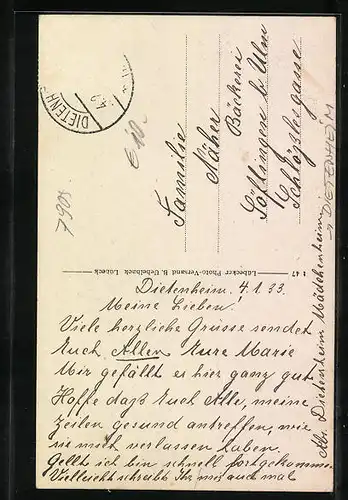 DIETENH
7909
Familie
Näher
Bäckerei
Söflingen b. Ulm
Schlößlesgasse
→ DIETENHEIM
Lübecker Photo-Versand B. Uebelhack Lübeck
t 47
Dietenheim, 4.1.33.
Meine Lieben!
Viele herzliche Grüsse sendet
Euch Allen Eure Marie
Mir gefällt es hier ganz gut
Hoffe daß Euch Alle, meine
Zeilen gesund antreffen, wie
sie mich verlassen haben.
Gellt ich bin schnell fortgekommen.
Vielleicht schreibt Ihr mir auch mal
Abs. Dietenheim Mädchenheim